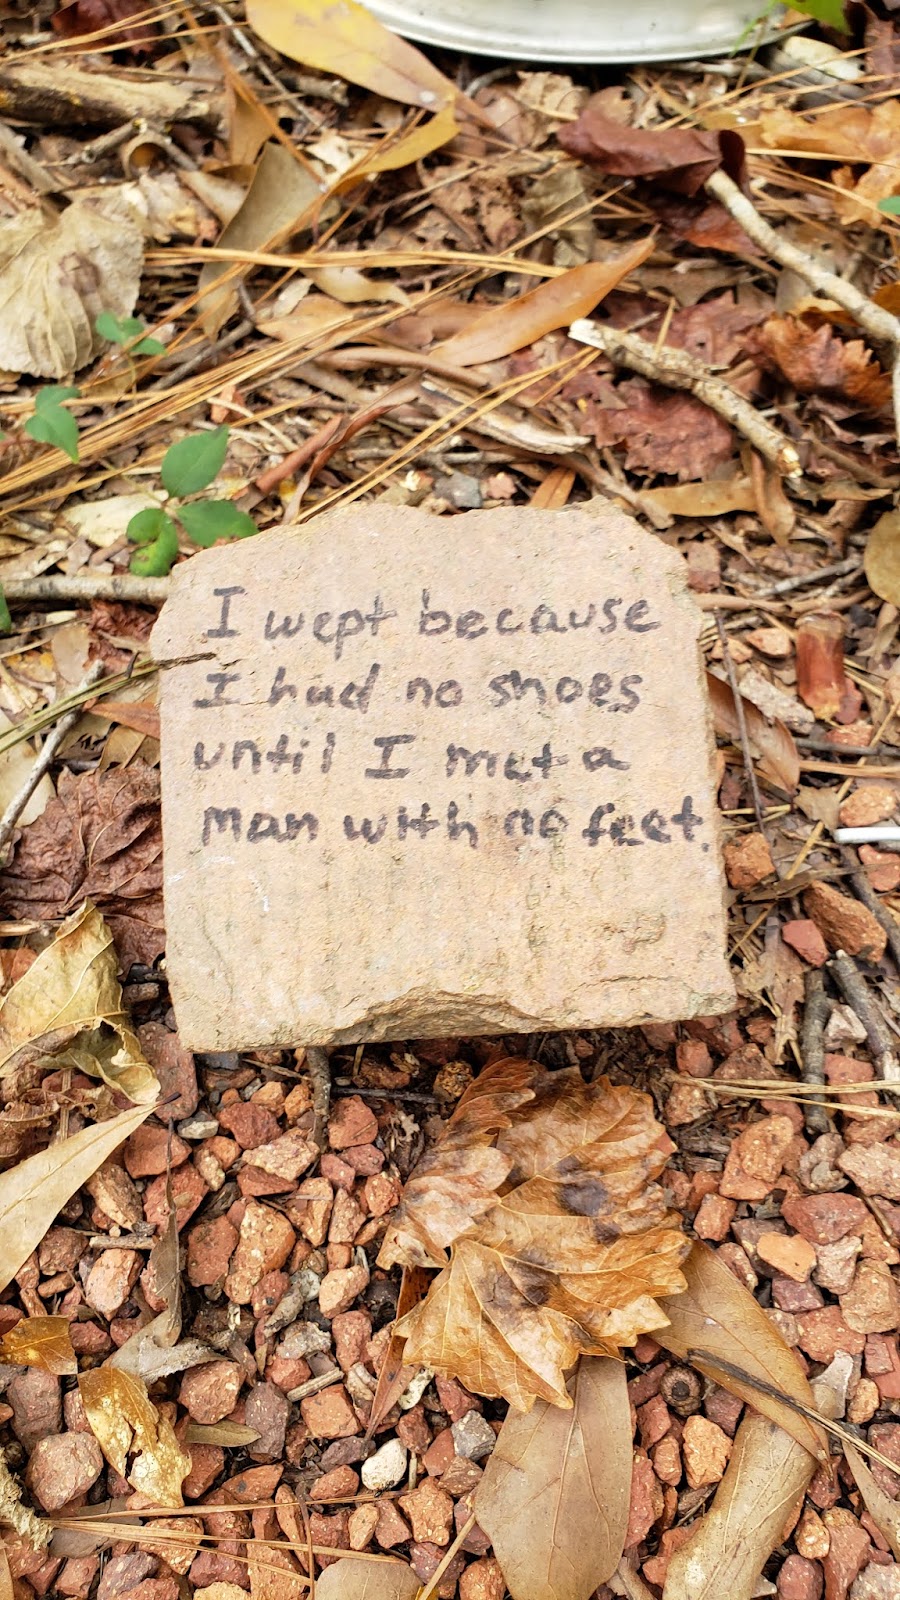 I wept because
I had no shoes
until I met a
man with no feet.